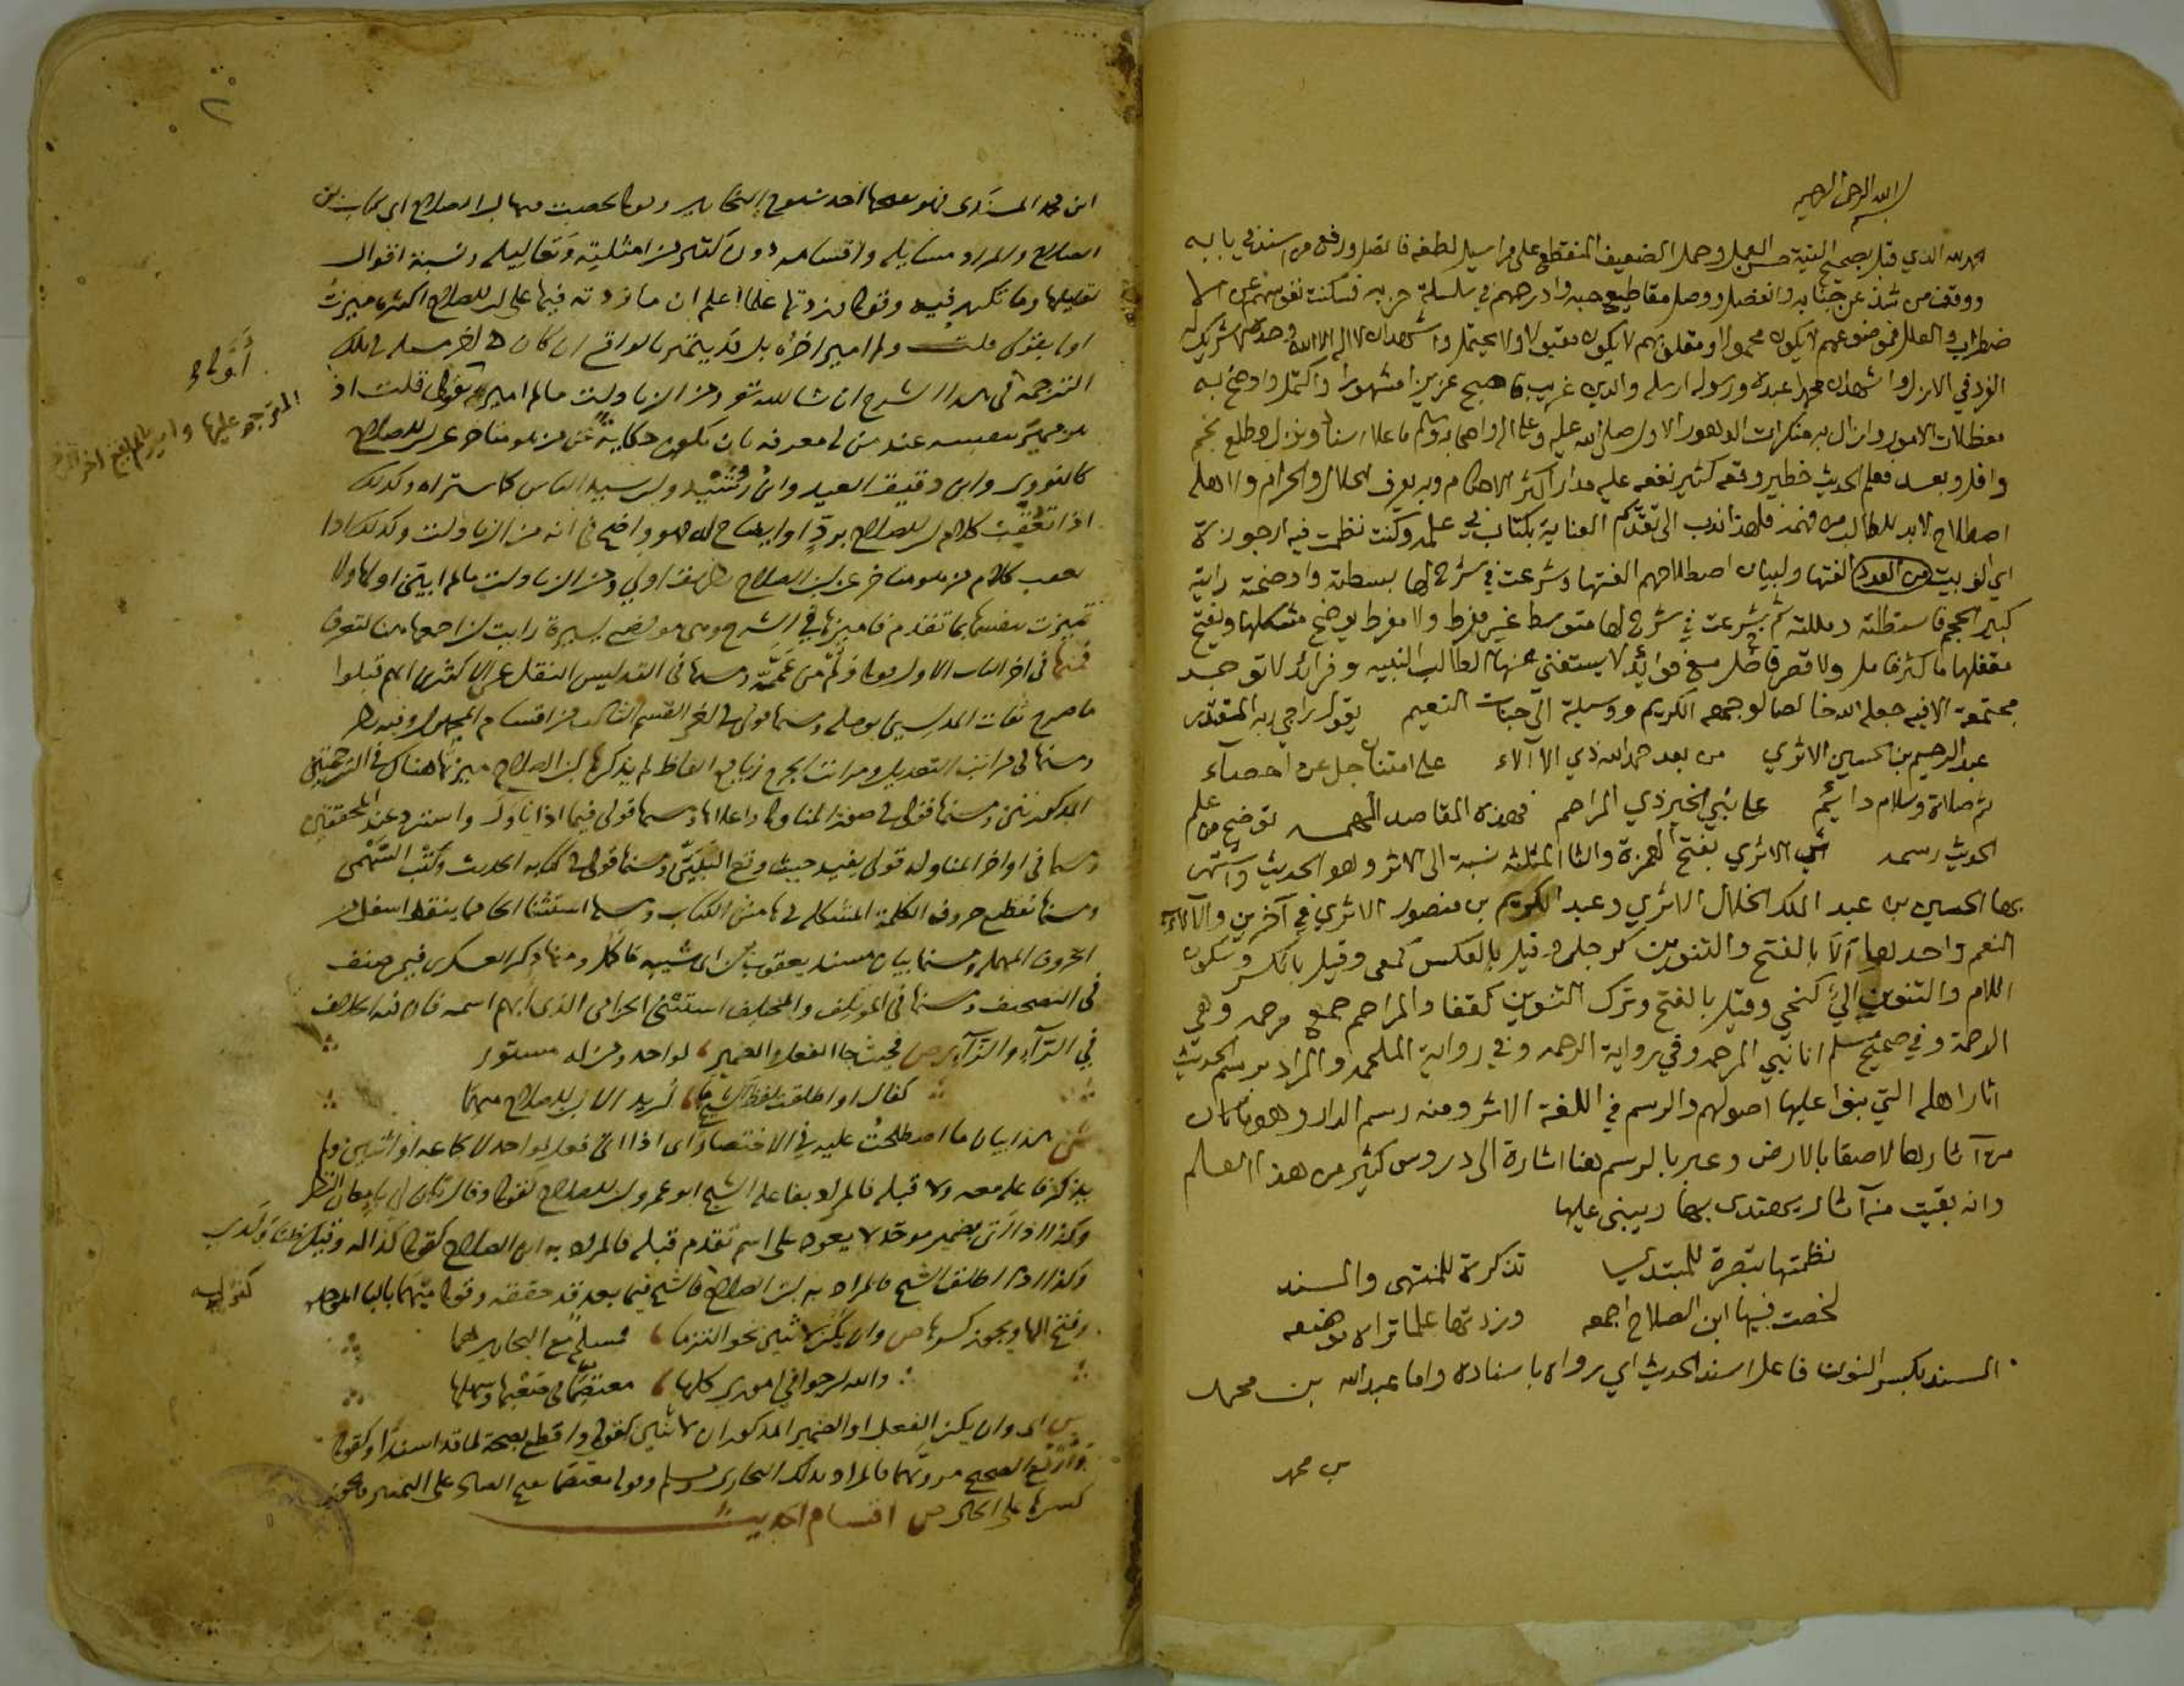 بسم الله الرحمن الرحيم
الحمد لله الذي قبل بصحيح النية حسن العمل وحمل الضعيف المنقطع على مراسيل لطفه فاتصل ورفع من اسند في بابه
ووقف من شذ عن جنابه وانفصل ووصل مقاطيع حبه وادرجهم في سلسلة حزبه فسكنت نفوسهم عن الا
ضطراب والعلل فموضوعهم لا يكون محمولا ومقلوبهم لا يكون مقبولا ولا يحتمل واشهد ان لا اله الا الله وحده لا شريك له
الفرد في الازل واشهد ان محمدا عبده ورسوله ارسله والدين غريب فاصبح عزيزا مشهورا واكتمل واوضح به
معظلات الامور وازال به منكرات الدهور الاول صلى الله عليه وعلى اله واصحابه وسلم ما علا اسناد ونزل وطلع نجم
وافل وبعد فعلم الحديث خطير وقعه كثير نفعه عليه مدار اكثر الاحكام وبه يعرف الحلال والحرام ولاهله
اصطلاح لابد للطالب من فهمه فلهذا ندب الى تقديم العناية بكتاب في علمه وكنت نظمت فيه ارجوزة
اي الف بيت من العدد الفتها ولبيان اصطلاحهم الفتها وشرعت في شرح لها بسطته واوضحته رايته
كبير الحجم فاستطلته ومللته ثم شرعت في شرح لها متوسط غير مفرط ولا مفرط يوضح مشكلها ويفتح
مقفلها ما كثر فامل ولا قصر فاخل مع فوائد لا يستغني عنها الطالب النبيه وفرائد لا توجد
مجتمعة الا فيه جعله الله خالصا لوجهه الكريم ووسيلة الى جنات النعيم يقول راجي ربه المقتدر
عبد الرحيم بن الحسين الاثري من بعد حمد الله ذي الالاء على امتنان جل عن احصاء
ثم صلاة وسلام دائم على نبي الخير ذي المراحم فهذه المقاصد المهمه توضح من علم
الحديث رسمه الاثري بفتح الهمزة والثا المثلثة نسبة الى الاثر وهو الحديث واشتهر
بها الحسين بن عبد الملك الخلال الاثري وعبد الكريم بن منصور الاثري في آخرين والآلاء
النعم واحدها آلا بالفتح والتنوين كرحل وقيل بالعكس كمعى وقيل بالكسر وسكون
اللام والتنوين الي كنحي وقيل بالفتح وترك التنوين كقفا والمراحم جمع مرحمه وهي
الرحمة وفي صحيح مسلم انا نبي المرحمه وفي رواية الرحمه وفي رواية الملحمه والمراد برسم الحديث
اثار اهله التي بنوا عليها اصولهم والرسم في اللغة الاثر ومنه رسم الدار وهو ما كان
من آثارها لاصقا بالارض وعبر بالرسم هنا اشارة الى دروس كثير من هذا العلم
وانه بقيت منه آثار يهتدى بها ويبنى عليها
نظمتها تبصرة للمبتدي تذكرة للمنتهى والمسند
لخصت فيها ابن الصلاح اجمعه وزدتها علما تراه موضعه
المسند بكسر النون فاعل اسند الحديث اي رواه باسناده واما عبد الله بن محمد
بن محمد
ابن محمد المسندى فهو بفتحها احد شيوخ البخاري وقولى لخصت فيها ابن الصلاح اي كتاب ابن
الصلاح والمراد مسايله واقسامه دون كثير من امثلته وتعاليله ونسبة اقوال
لقايليها وما تكرر فيه وقولى وزدتها علما اعلم ان ما زدته فيها على ابن الصلاح اكثره ميزت
اوله بقولى قلت ولم اميز اخره بل قد يتميز بالواقع ان كان اخر مسله في تلك
الترجمة في هذا الشرح ان شا الله تعالى ومن الزيادات ما لم اميزه بقولى قلت اذ
هو مميز بنفسه عند من له معرفه بان يكون حكاية عن من هو متاخر عن ابن الصلاح
كالنووي وابن دقيق العيد وابن رشيد وابن سيد الناس كما ستراه وكذلك
اذا تعقبت كلام ابن الصلاح برد او ايضاح له فهو واضح في انه من الزيادات وكذلك اذا
تعقب كلام من هو متاخر عن ابن الصلاح بطريق اولى ومن الزيادات ما لم ابين اولها ولا
تميزت بنفسها بما تقدم فاميزها في الشرح وهي مواضع يسيرة رايت ان اجمعها هنا لتعرف
فمنها في اخر الباب الاول قولى ولم من عممه ومنها في التدليس النقل عن الاكثرين انهم قبلوا
ما صرح ثقات المدلسين بوصله ومنها قولى في اخر القسم الثالث من اقسام المجهول وفيه نظر
ومنها في مراتب التعديل ومراتب الجرح زيادة الفاظ لم يذكرها ابن الصلاح ميزتها هناك في الترجمتين
المذكورتين ومنها قولى في صور المناوله واعلاها ومنها قولى فيما اذا ناول واسترد عند المحققين
ومنها في اواخر المناوله قولى يفيد حيث وقع التبين ومنها قولى في كتابه الحديث وكتب السهمى
ومنها تقطيع حروف الكلمة المشكله في هامش الكتاب ومنها استثنا الحا مما ينقط اسفل من
الحروف المهمله ومنها بيان مسند يعقوب بن ابى شيبه ما كمل ومنها ذكر العسكرى فيمن صنف
في التصحيف ومنها في المؤتلف والمختلف استثنى الحرامى الذي ابهم اسمه فان فيه الخلاف
في الراء والزاى ص فحيث جا الفعل والضمير لواحد ومن له مستور
كقال او اطلقت لفظ الشيخ ما اريد الا ابن الصلاح مبهما
ش هذا بيان ما اصطلحت عليه في الاختصار اى اذا اتى فعل لواحد لا لجماعه او اثنين ولم
يذكر فاعله معه ولا قبله فالمراد بفاعله الشيخ ابو عمرو بن الصلاح كقولى وقال بان لى بامعان النظر
وكذا اذا اتى بضمير موحد لا يعود على اسم تقدم قبله فالمراد به ابن الصلاح كقولى كذا له وقيل ظنا ولدي
وكذا اذا اطلق الشيخ فالمراد به ابن الصلاح كقوله فالشيخ فيما بعد قد حققه وقولى مبهما بالبا الموحده
وفتح الها ويجوز كسرها ص وان يكن لاثنين نحو التزما فمسلم مع البخارى هما
والله ارجو في امورى كلها معتصما في صعبها وسهلها
ش اى وان يكن الفعل او الضمير المذكوران لاثنين كقولى واقطع بصحة لما قد اسندا وكقولى
وارفع الصحيح مرويهما فالمراد بذلك البخارى ومسلم وقولى معتصما بفتح الصاد على التمييز ويجوز
كسرها على الحال ص اقسام الحديث